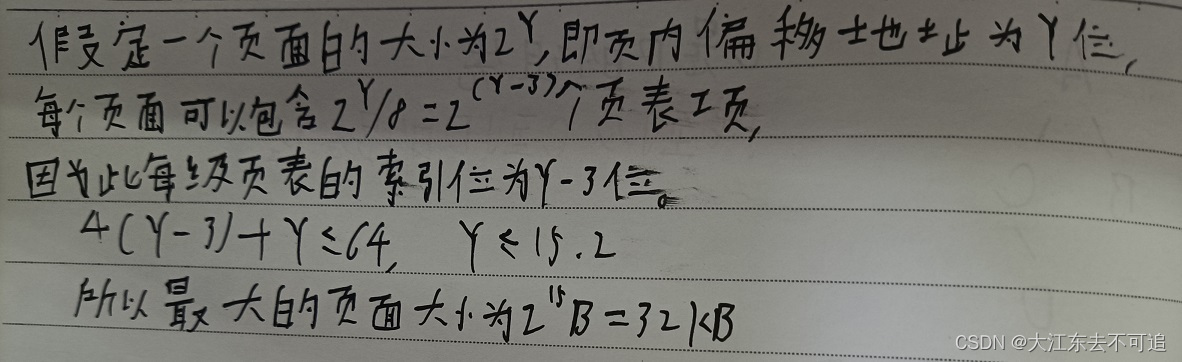 假设定一个页面的大小为2^Y,即页内偏移地址为Y位,
每个页面可以包含2^Y/8=2^(Y-3)个页表项,
因为此每级页表的索引位为Y-3位。
4(Y-3)+Y≤64, Y≤15.2
所以最大的页面大小为2^15B=32KB
CSDN @大江东去不可追